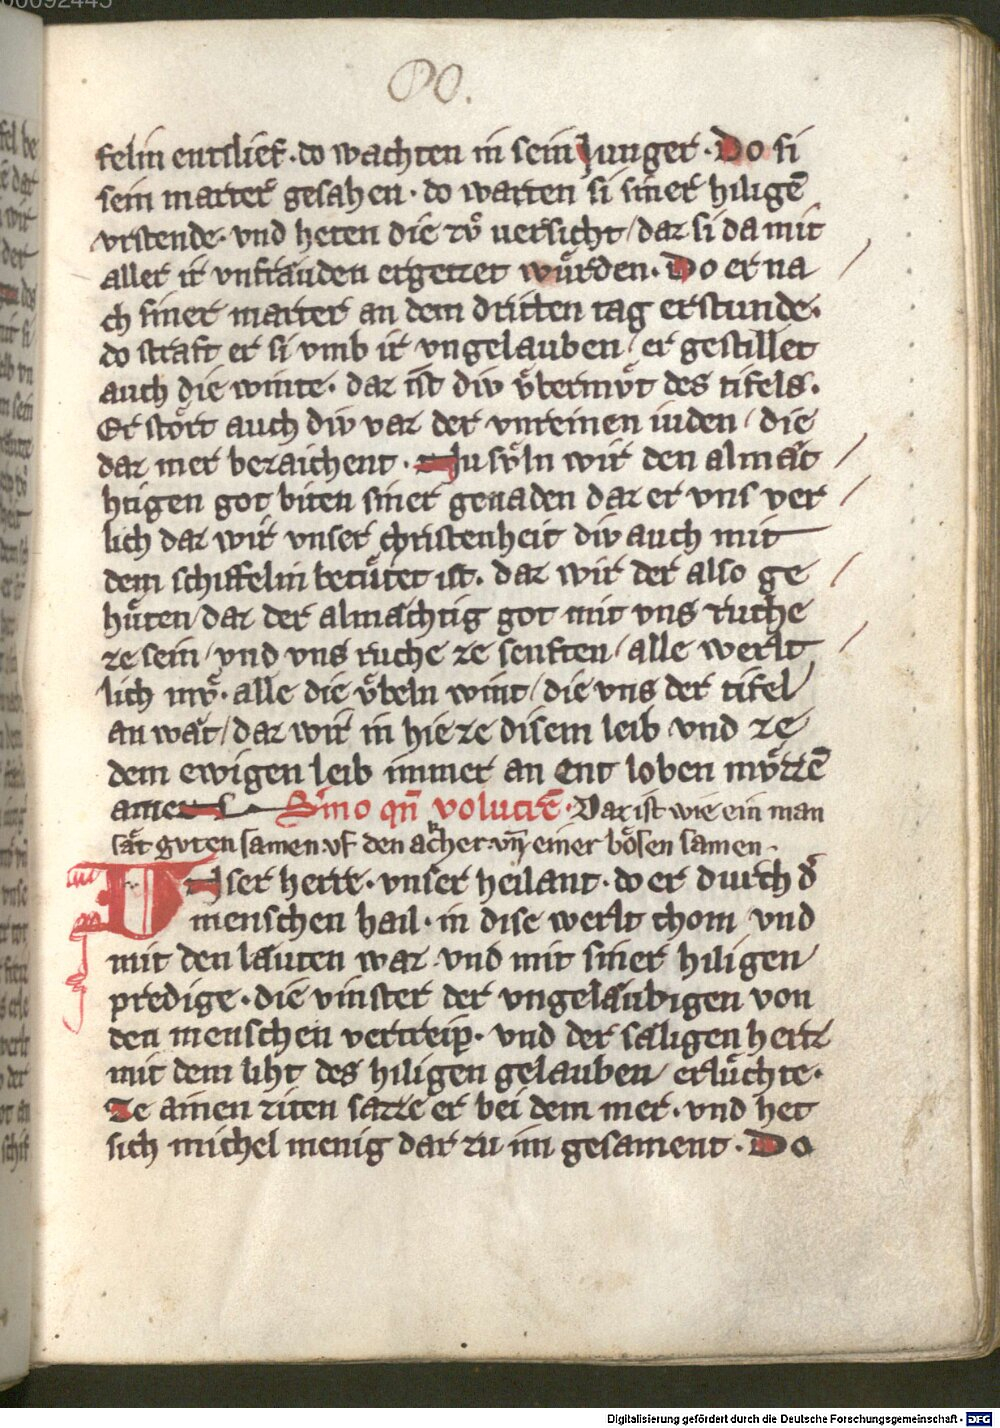 felin entslief · do wachten in sein Junger · Do si
sein marter gesahen · do warten si siner hiligē
vrstende · vnd heten die zvͦ uersicht / daz si da mit
aller ir vnfraͤuden ergetzet wuͤrden · Do er na
ch siner marter an dem dritten tag erstunde ·
do straft er si vmb ir vngelauben / er gestillet
auch die winte · daz ist div vͤbermvͤt des tifels ·
Er stoͤrt auch div var der vnreinen iuden / die
daz mer bezaichent · Nu svͤln wir den almaͤc
htigen got biten siner genaden daz er vns ver
lich daz wir vnser christenheit div auch mit
dem schiffelin betuͤtet ist · daz wir der also ge
huͤten / daz der almaͤchtig got mit vns ruche
ze sein / vnd vns ruche ze senften / alle werlt
lich mvͤ · alle die vͤbeln wint / die vns der tifel
an waͤt / daz wir in hie ze disem leib vnd ze
dem ewigen leib immer an ent loben mvͤzzē
amen Dn̄o qn̄ volucrē · Daz ist wie ein man
saͤt gvten samen vf den acher vn̄ einer boͤsen samen ·
Vnser herre · vnser heilant · do er durch dͤ
menschen hail · in dise werlt chom / vnd
mit den laͤuten waz · vnd mit siner hiligen
predige · die vinster der vngelaͤubigen von
den menschen vertreip · vnd der saͤligen hertz
mit dem liht des hiligen gelauben / erluͤchte ·
Ze ainen ziten sazze er bei dem mer · vnd het
sich michel menig dar zu im gesament · Do
Digitalisierung gefördert durch die Deutsche Forschungsgemeinschaft - DFG